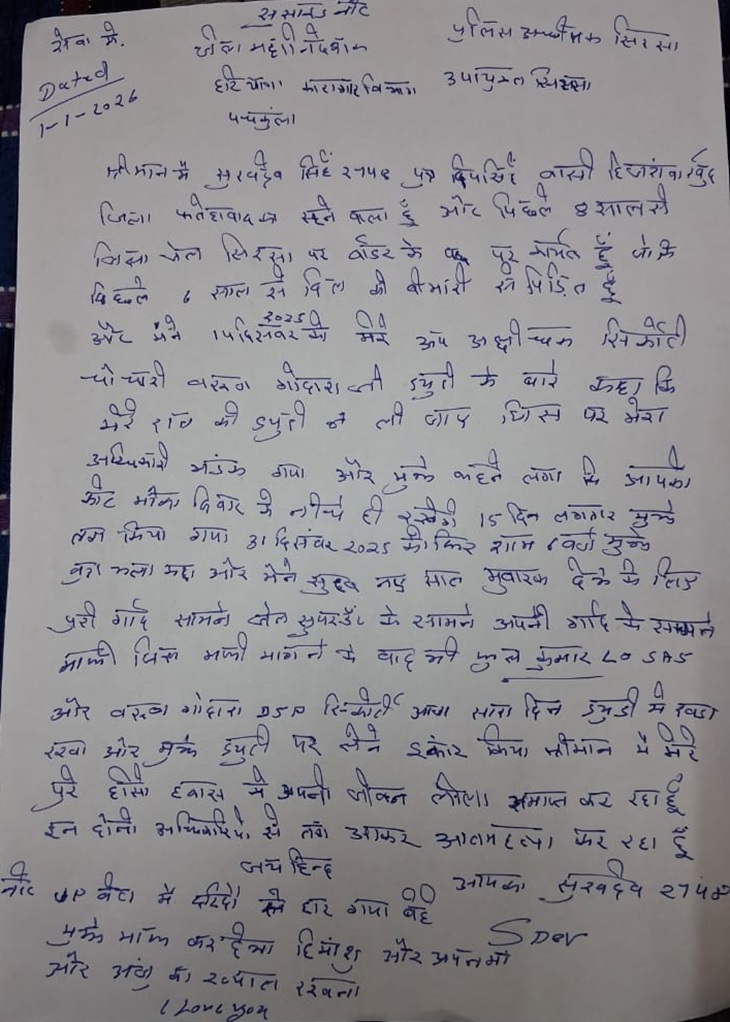 सुसाइड नोट
सेवा मे. जेल महानिदेशक पुलिस अधीक्षक सिरसा
Dated हरियाणा कारागार विभाग उपायुक्त सिरसा
1-1-2026 पंचकुला
श्रीमान मै सुखदेव सिंह 2748 पुत्र वासी
जिला फतेहाबाद का रहने वाला हूँ और पिछले 8 साल से
जिला जेल सिरसा पर वार्डर के पद पर कार्यरत हूँ जो कि
पिछले 6 साल से दिल की बीमारी से पिड़ित हूँ
और मैने 14 दिसंबर 2025 को मेरे
वरुण गोदारा डयुटी के बारे कहा कि
मेरे रात की डयुटी न ली जाए जिस पर मेरा
अधिकारी भड़क गया और मुझे कहने लगा कि आपको
कोट मौका दिवार के नीचे ही रखेंगे 15 दिन लगातार मुझे
तंग किया गया 31 दिसंबर 2025 को फिर शाम 6 बजे मुझे
बुरा भला कहा और मैने सुबह नए साल मुबारक देने के लिए
पुरी गार्द सामने जेल के सामने अपनी गार्द के सामने
माफी माफी मागने के बाद भी कुमार LO SAS
और वरुण गोदारा DSP सिक्योर्टी सारा दिन डयुडी मे खडा
रखा और मुझे डयुटी पर लेने इंकार किया श्रीमान मै मेरे
पुरे होसो हवास मे अपनी जीवन लीला समाप्त कर रहा हूँ
इन दोनो अधिकारियो से तंग आकर आत्महत्या कर रहा हूँ
जय हिन्द
नोट बेटा मै से हार गया आपका सुखदेव 2748
मुझे माफ कर देना हिमांशु और SDev
और का ख्याल रखना
I Love you